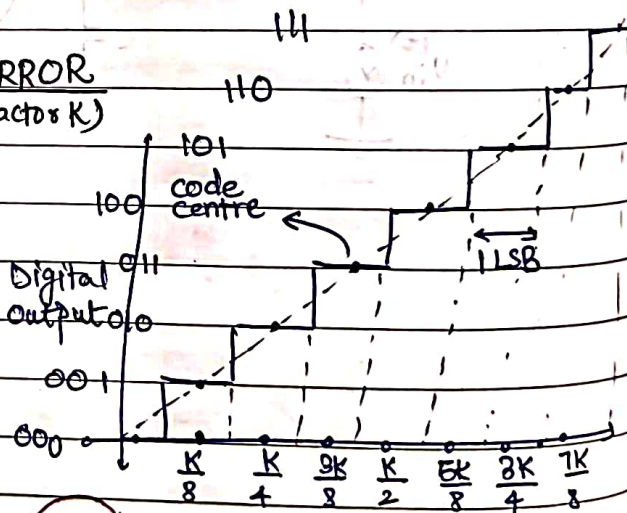 111
RROR
actor K)
110
101
code
centre
100
1 LSB
011
Digital
output 010
001
000
K/8 K/4 3K/8 K/2 5K/8 3K/4 7K/8